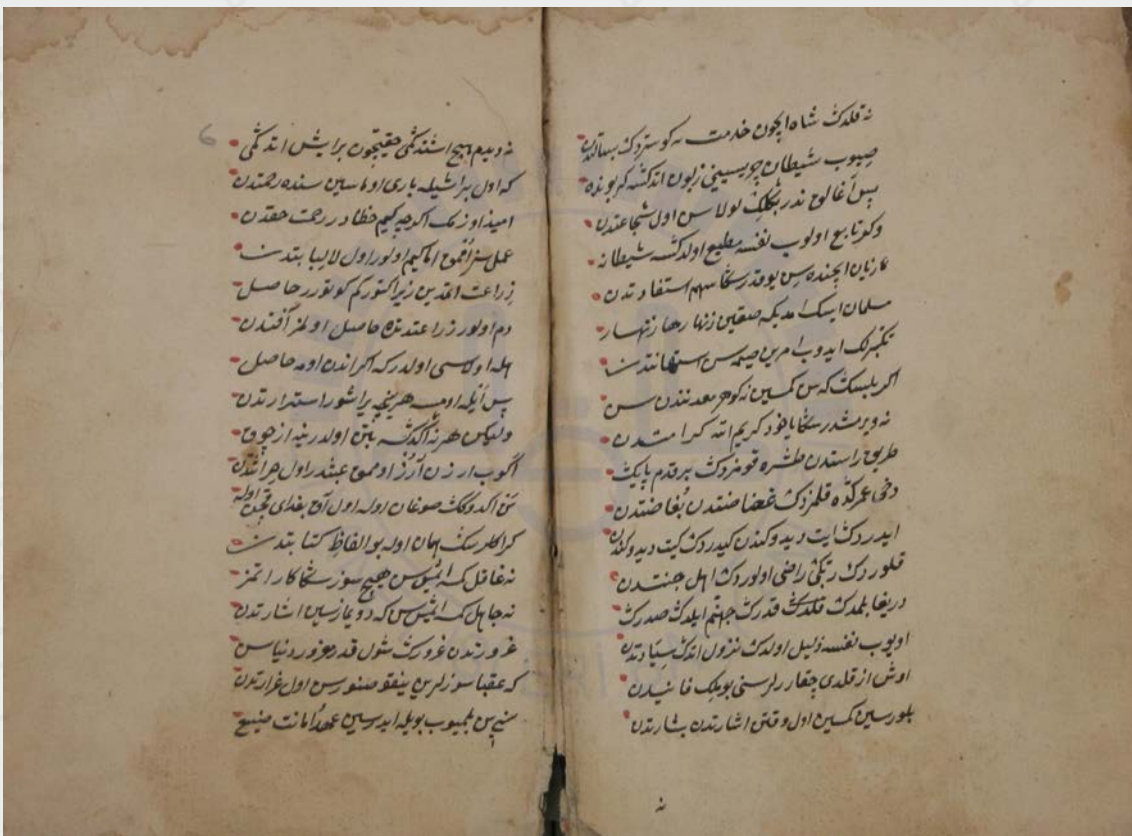 نه قلدك شاه ايچون خدمت نه كوستردك بسالتدن
صيوب شيطان چريسيني زبون اتدكسه كر بونده
پس آغالوح ندر بكلك بولاسن اول شجاعتدن
وكر تابع اولوب نفسه مطيع اولدكسه شيطانه
زيان ايچنده سن بو قدر سكا سهم استفادتدن
مسلمان ايسك امدى كه صقين زنهار ها زنهار
تكبرلك ايدوب امرين صيمه سن استهانتدن
اكر بلسك كه سن كمسين نه كوهر معدنندن سن
نه ويرمشدر سكا يا خود كريم الله كرامتدن
طريق راستدن طشره قومزدك بر قدم پايك
دخى عمركده قلمزدك غضاضتدن بغاضتدن
ايدردك ايت ديدوكندن كيدردك كيت ديدوكندن
قلوردك ربكى راضى اولوردك اهل جنتدن
دريغا بلمدك قلدك قدرك جهنم ايلدك صدرك
اويوب نفسه ذليل اولدك نزول اتدك سيادتدن
اوش از قلدى چقار رلر سنى بو ملك فانيدن
بلورسين كمسين اول وقتن اشارتدن بشارتدن
نه
6
نه ديدم هيچ اشتدكمى حقيچون بر ايش اتدكمى
كه اول بر اشيله بارى اوماسين سنده رحمتدن
اميد اوزمك اكرچه كيم خطادر رحمت حقدن
عملسز اقموح اما كيم اولور اول لاليبا بتدن
زراعت اتمدين زيرا كتورر كم كوتورر حاصل
دم اولور زراعتدنده حاصل اولمز آفتدن
اهله اوكسى اولدر كه اكر اندن اومه حاصل
پس ايله اومسه هر نيچه يراشور استراردتدن
وليكن هر نه اكدكسه بتن اولدر نه از چوق
اكوب ارزن آرز اوممق عبثدر اول حراثتدن
سن اكدوكك صوغان اوله اول آق بغداى قچن اوله
كر اكلرسك همان اوله بو الفاظ كتابتدن
نه غافل كمسه ايمشسن هيچ سوز سكا كار اتمز
نه جاهل كمسه ايمشسن كه دويمازسين اشارتدن
غرورتدن غرورك شول قدر مغرور دنياسن
كه عقبا سوزلرين ينقو صنورسن اول غرارتدن
سنى سن بلميوب بويله ايدرسين عهد امانت ضيع